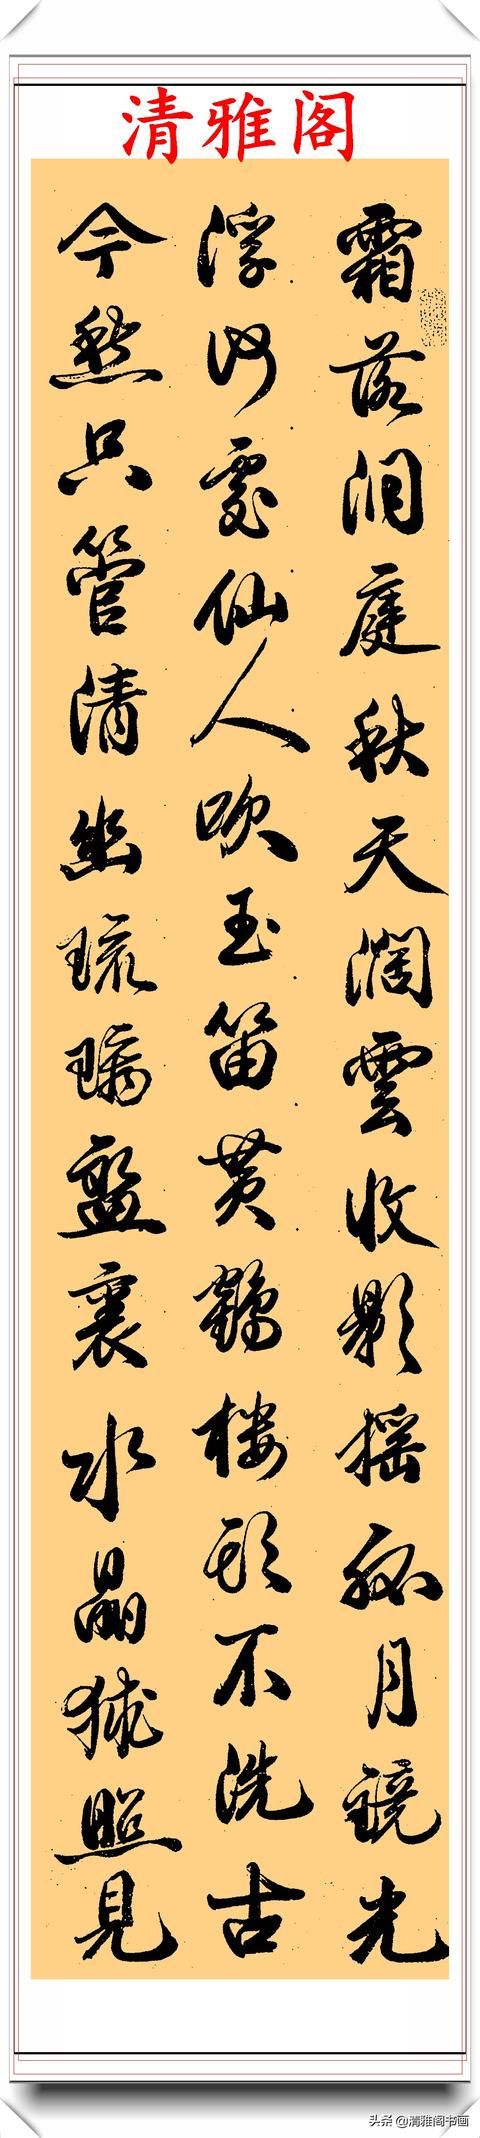 清雅阁
霜落洞庭秋天濶雲收影摇孤月鏡光
浮何處仙人吹玉笛黄鶴樓頭不洗古
今愁只管清幽琉璃盤裏水晶毬照見
头条@清雅阁书画